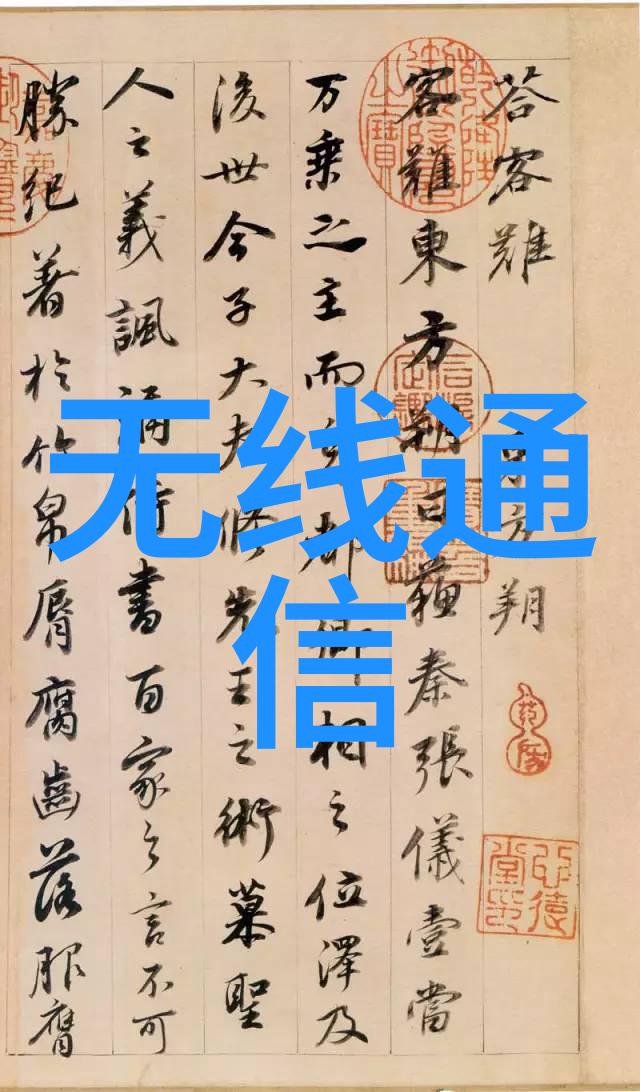 无线通
信
荅客難
東方朔
客難東方朔曰蘇秦張儀壹當
万乘之主而都卿相之位澤及
後世今子大夫修先王之術慕聖
人之義諷誦詩書百家之言不可
勝紀著於竹帛脣腐齒落服膺